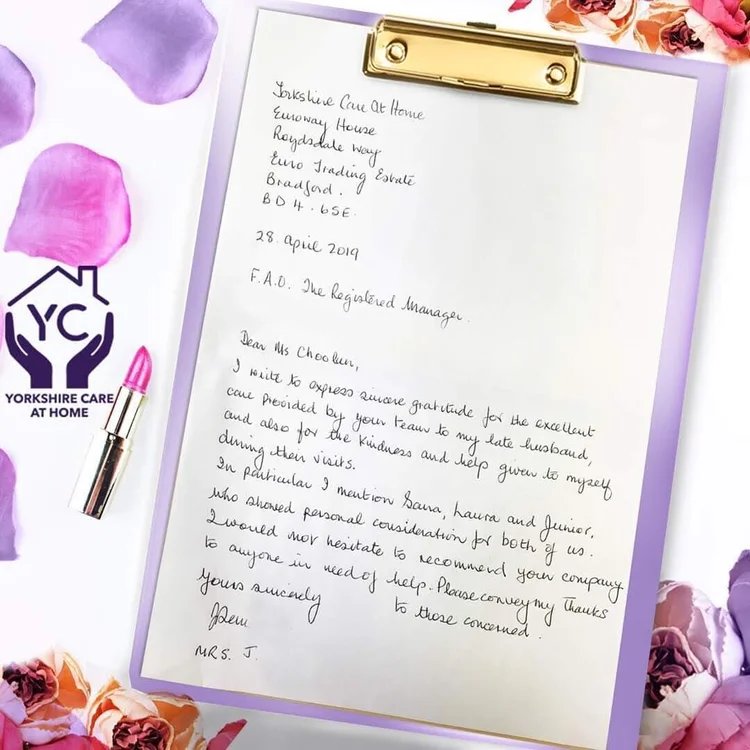 Yorkshire Care At Home
Euroway House
Roydsdale Way
Euro Trading Estate
Bradford.
BD4. 6SE.
28. April 2019
F.A.O. The Registered Manager.
Dear Ms Choolun,
I write to express sincere gratitude for the excellent
care provided by your team to my late husband,
and also for the kindness and help given to myself
during their visits.
In particular I mention Sana, Laura and Junior,
who showed personal consideration for both of us.
I would not hesitate to recommend your company
to anyone in need of help. Please convey my Thanks
to those concerned.
Yours sincerely
MRS. J.
YC
YORKSHIRE CARE
AT HOME